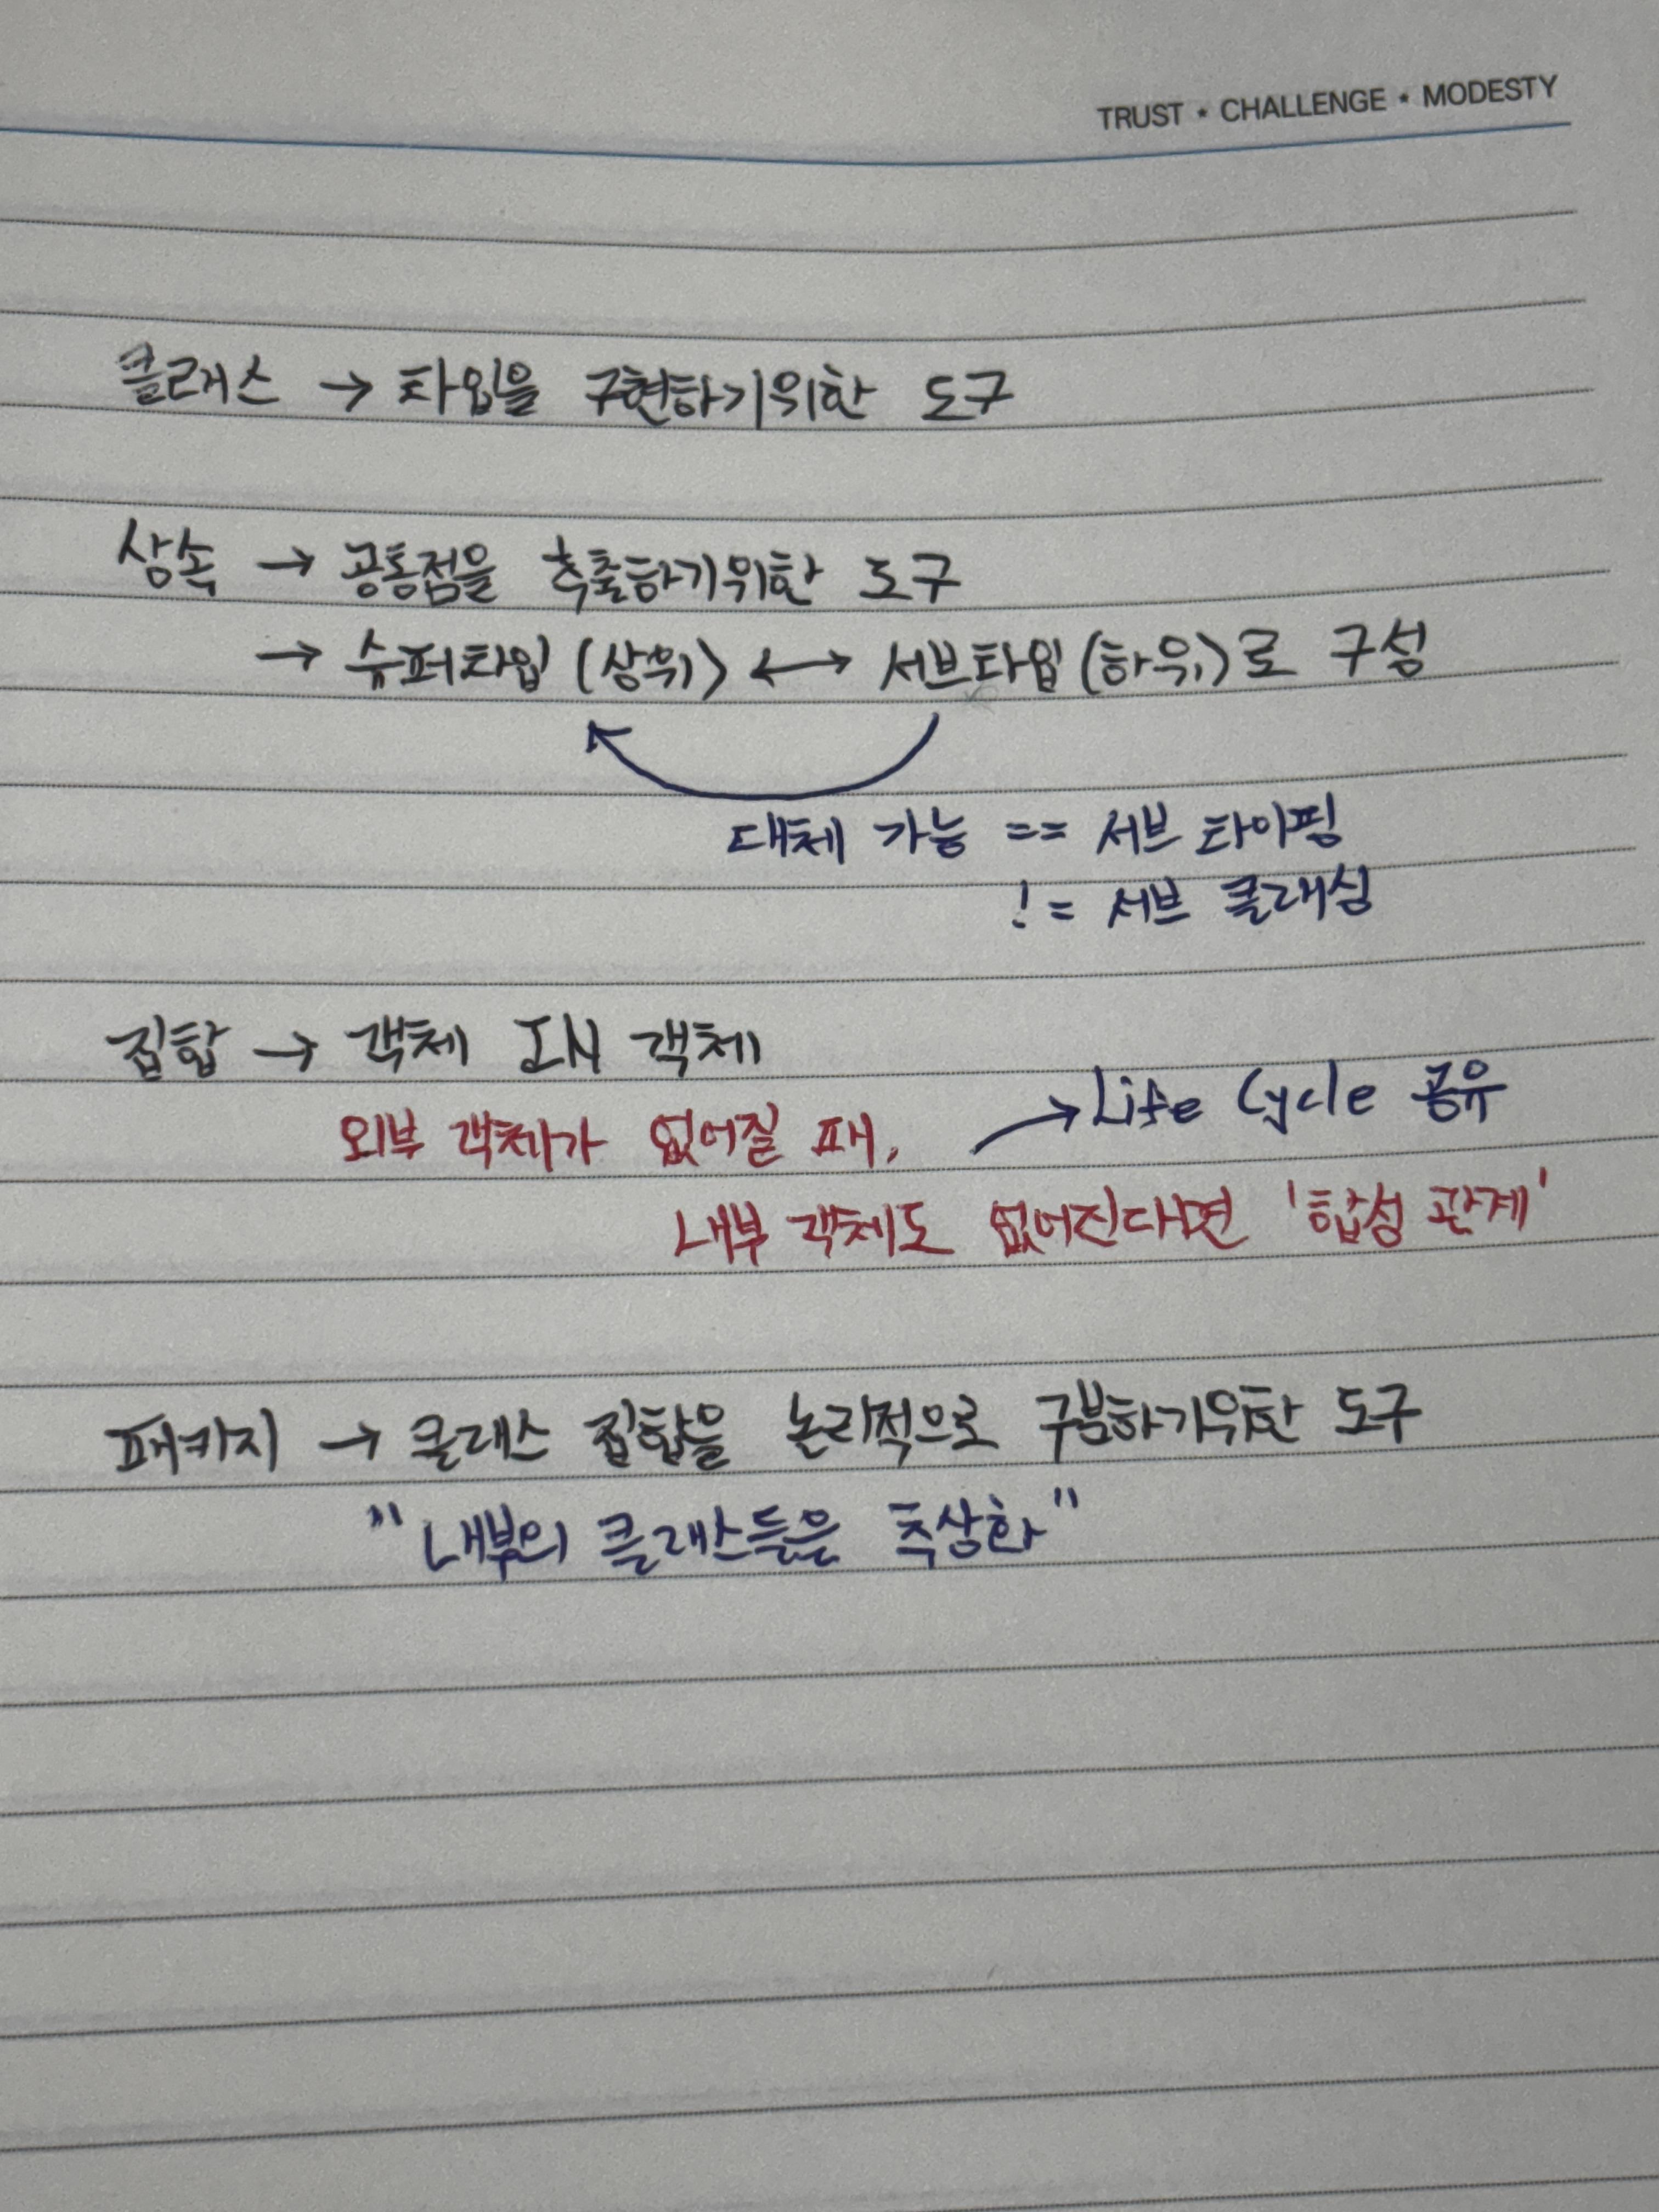 TRUST * CHALLENGE * MODESTY
클래스 → 타입을 구현하기위한 도구
상속 → 공통점을 추출하기위한 도구
→ 슈퍼타입 (상위) ↔ 서브타입 (하위)로 구성
대체 가능 == 서브 타이핑
!= 서브 클래싱
집합 → 객체 IN 객체
→ Life Cycle 공유
외부 객체가 없어질 때,
내부 객체도 없어진다면 '합성 관계'
패키지 → 클래스 집합을 논리적으로 구분하기위한 도구
"내부의 클래스들은 추상화"